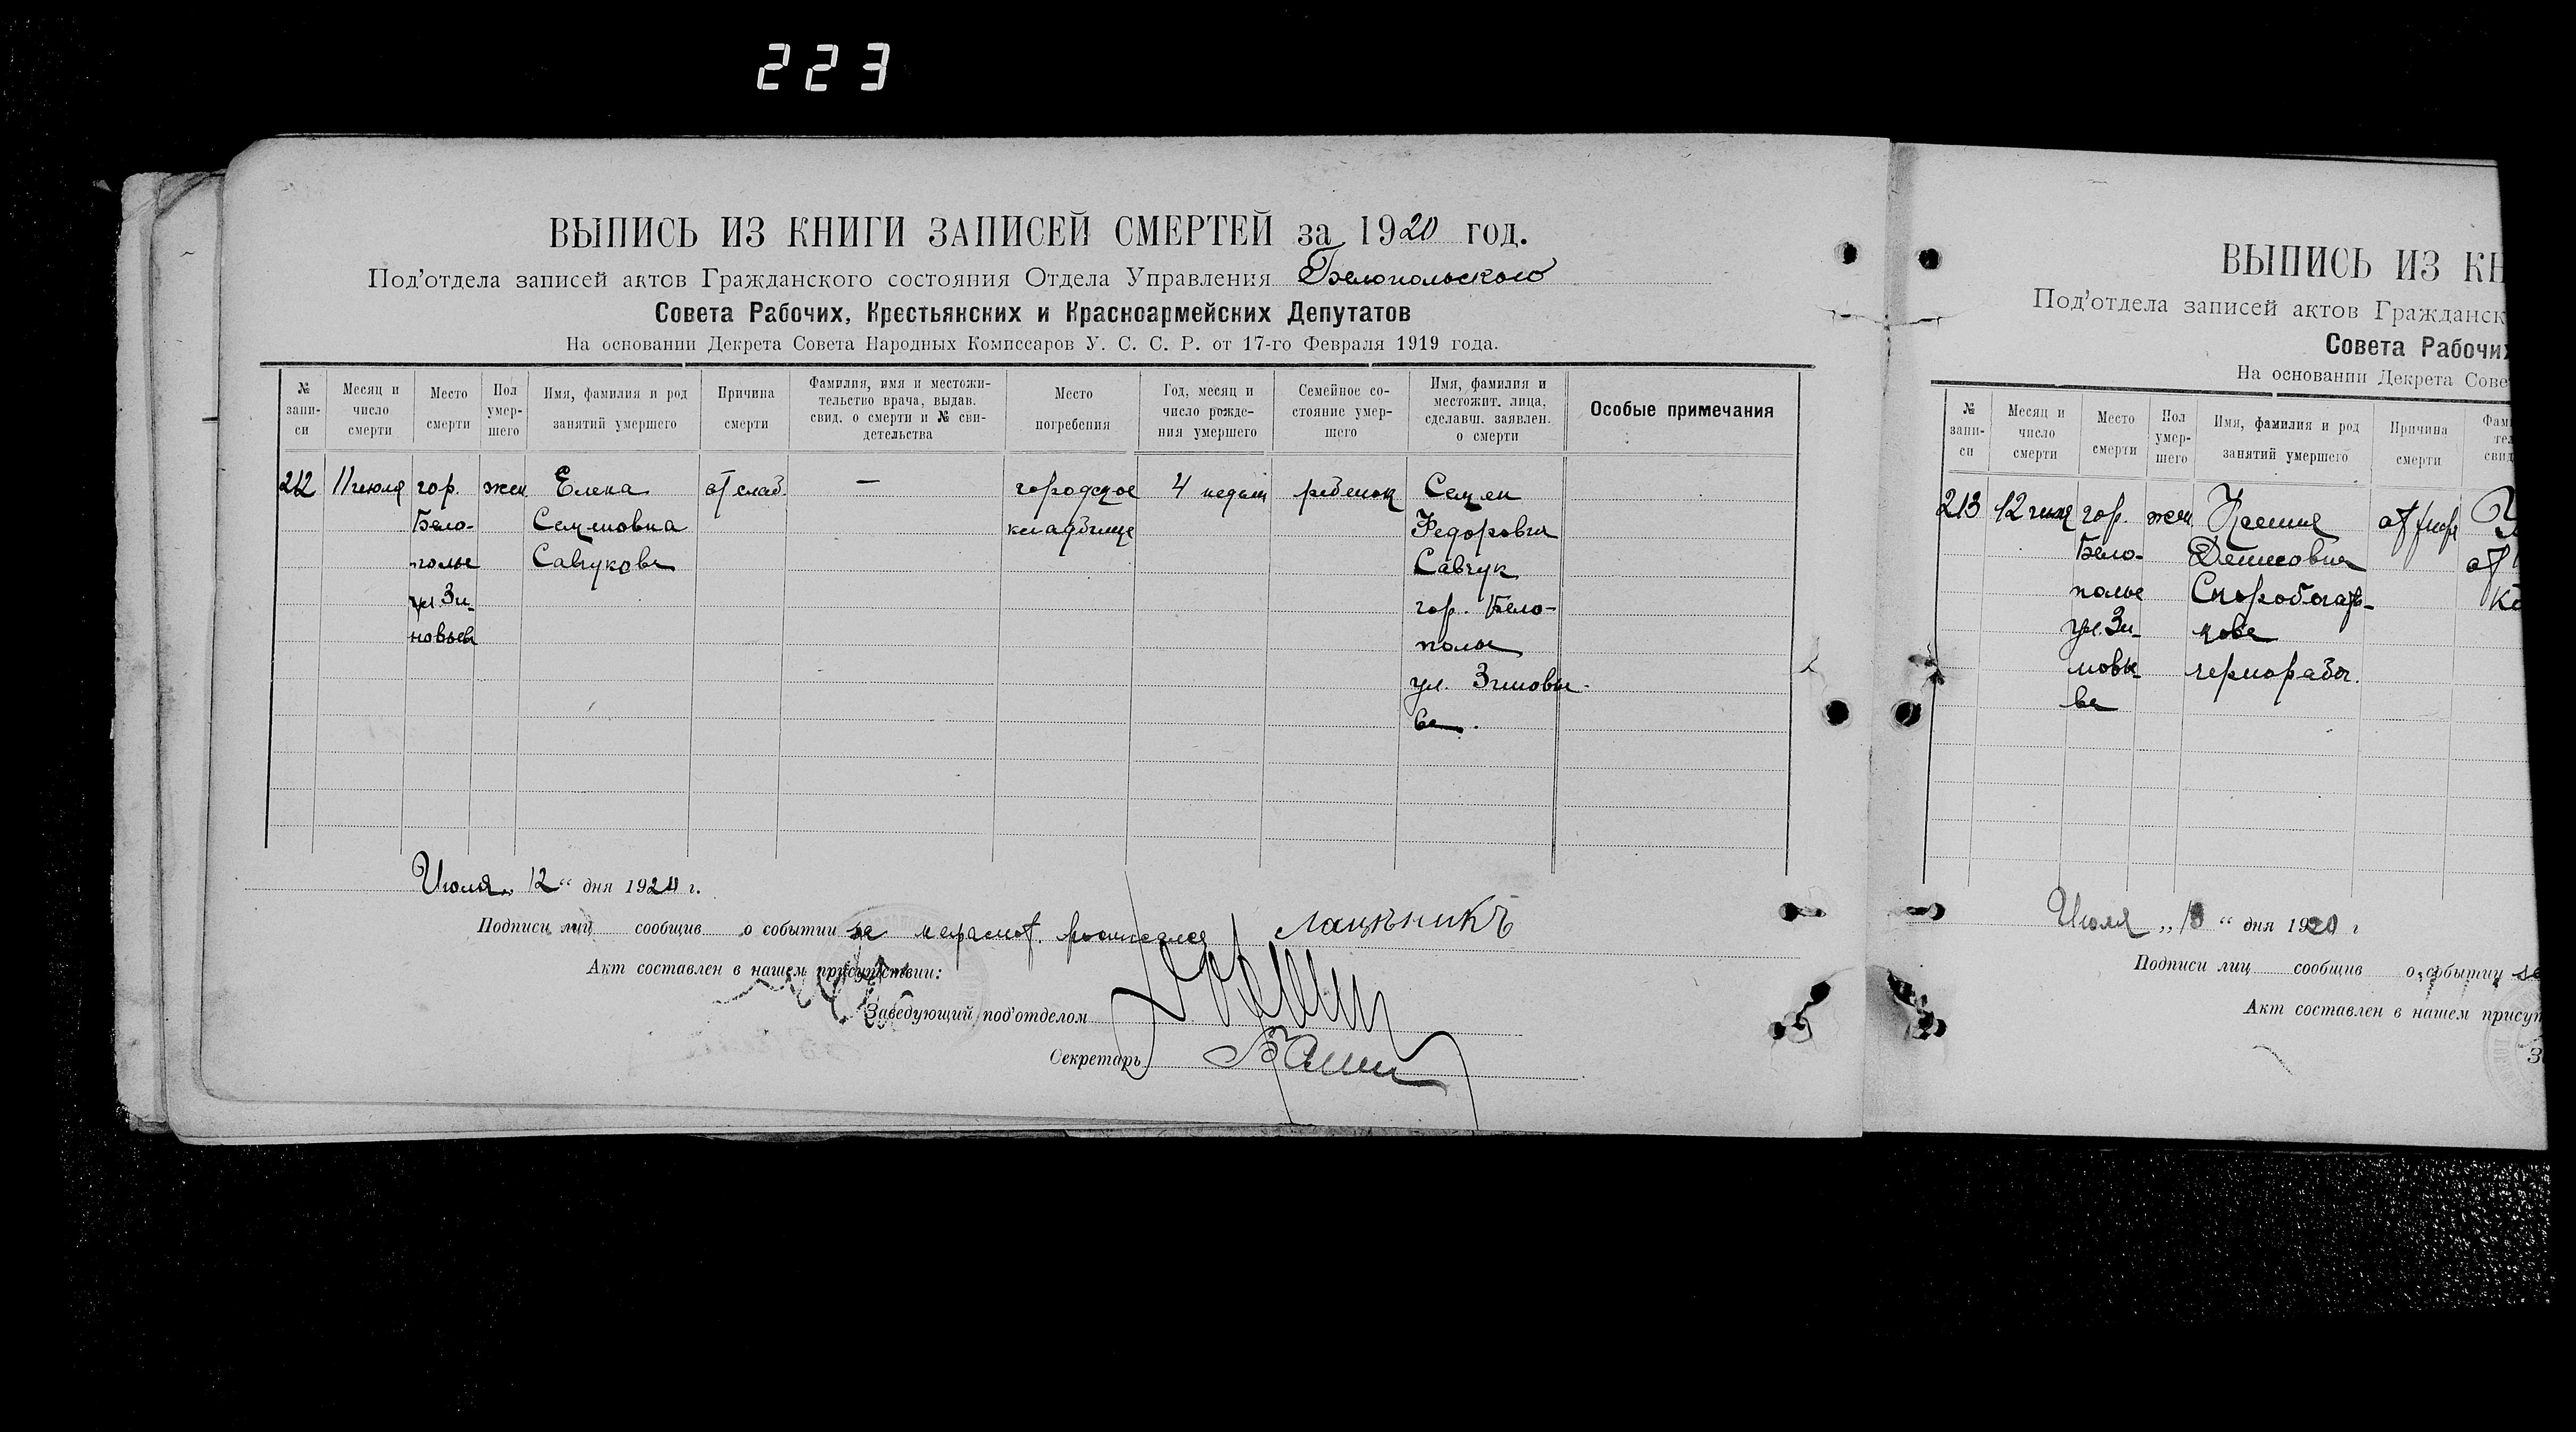 223
ВЫПИСЬ ИЗ КНИГИ ЗАПИСЕЙ СМЕРТЕЙ за 1920 год.
Под'отдела записей актов Гражданского состояния Отдела Управления Белопольского
Совета Рабочих, Крестьянских и Красноармейских Депутатов
На основании Декрета Совета Народных Комиссаров У. С. С. Р. от 17-го Февраля 1919 года.
№ запи-си
Месяц и число смерти
Место смерти
Пол умер-шего
Имя, фамилия и род занятий умершего
Причина смерти
Фамилия, имя и местожи-тельство врача, выдав. свид. о смерти и № сви-детельства
Место погребения
Год, месяц и число рожде-ния умершего
Семейное со-стояние умер-шего
Имя, фамилия и местожит. лица, сделавш. заявлен. о смерти
Особые примечания
212 11 июля гор. жен. Елена от слаб. — городское 4 недели ребенок Семен
Бело- Семеновна кладбище Федорович
полье Савчукова Савчук
ул. Зи- гор. Бело-
новьева полье
ул. Зиновье-
ва.
Июля 12 " дня 1920 г.
Подписи лиц сообщив о событии за неграмот. росписался
Акт составлен в нашем присутствии:
Заведующий под'отделом
Секретарь
ВЫПИСЬ ИЗ КН
Под'отдела записей актов Гражданск
Совета Рабочих
На основании Декрета Сове
№ запи-си
Месяц и число смерти
Место смерти
Пол умер-шего
Имя, фамилия и род занятий умершего
Причина смерти
213 12 июля гор. жен.
Бело- Денисовна
полье Скоробогать-
ул. Зи- кова
новье- чернораб.
ва
Июля „ 13 " дня 1920 г
Подписи лиц сообщив о событии за
Акт составлен в нашем присут